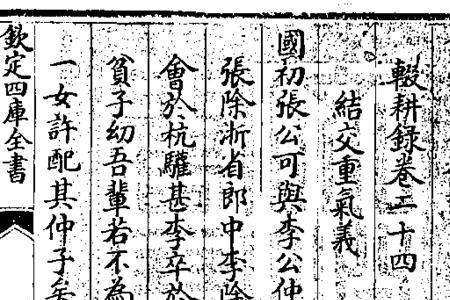 輟耕錄卷二十四
結交重氣義
國初張公可與李公仲
張除浙省郎中李除
會於杭驩甚李卒於
貧子幼吾輩若不為
一女許配其仲子矣
欽定四庫全書